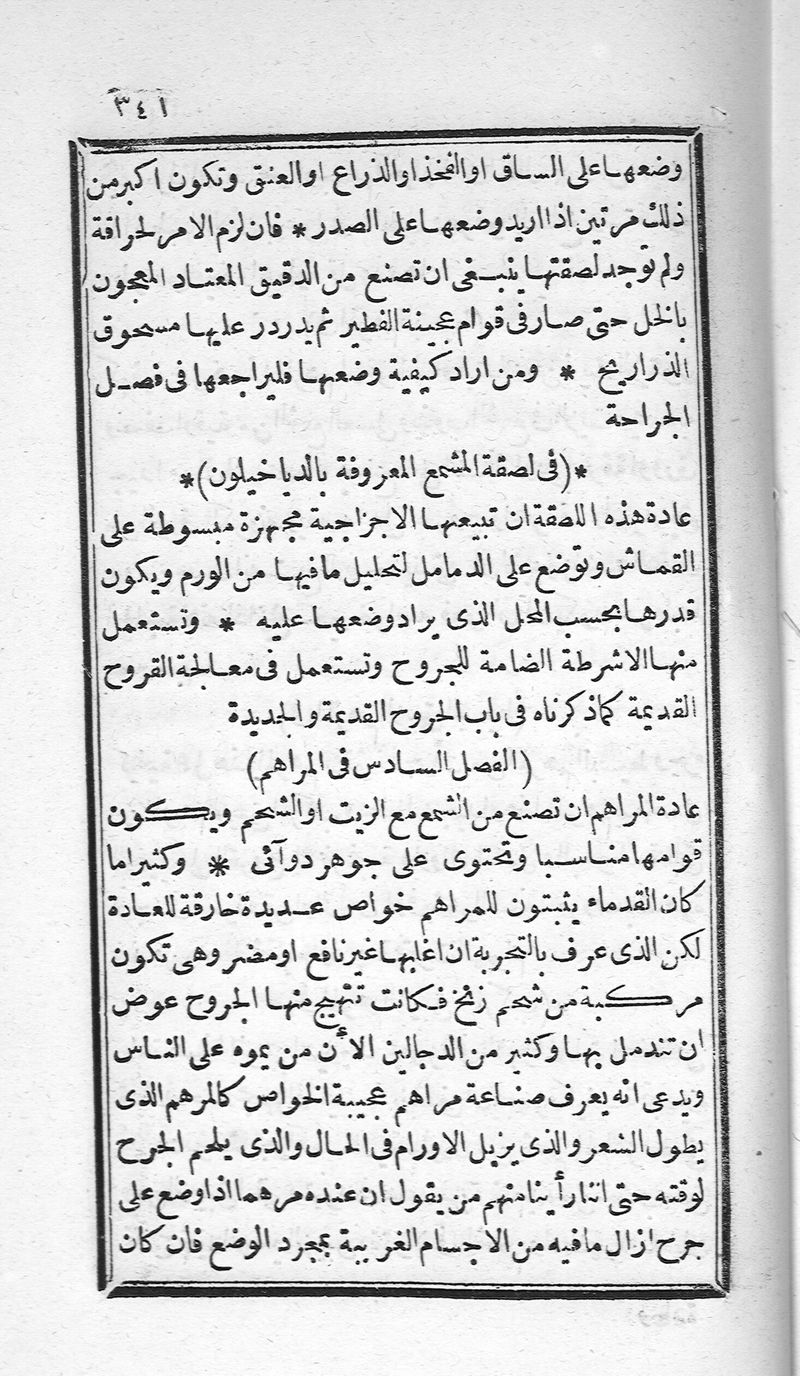 ٣٤١
وضعها على الساق او الفخذ او الذراع او العنق وتكون اكبر من
ذلك مرتين اذا اريد وضعها على الصدر * فان لزم الامر لحراقة
ولم توجد لصقتها ينبغى ان تصنع من الدقيق المعتاد المعجون
بالخل حتى صار فى قوام عجينة الفطير ثم يدردر عليها مسحوق
الذراريح * ومن اراد كيفية وضعها فليراجعها فى فصل
الجراحة
*(فى لصقة المشمع المعروفة بالدياخيلون)*
عادة هذه اللصقة ان تبيعها الاجزاجية مجهزة مبسوطة على
القماش وتوضع على الدمامل لتحليل ما فيها من الورم ويكون
قدرها بحسب المحل الذى يراد وضعها عليه * وتستعمل
منها الاشرطة الضامة للجروح وتستعمل فى معالجة القروح
القديمة كما ذكرناه فى باب الجروح القديمة والجديدة
(الفصل السادس فى المراهم)
عادة المراهم ان تصنع من الشمع مع الزيت او الشحم ويكون
قوامها مناسبا وتحتوى على جوهر دوآئى * وكثيرا ما
كان القدماء يثبتون للمراهم خواص عديدة خارقة للعادة
لكن الذى عرف بالتجربة ان اغلبها غير نافع او مضر وهى تكون
مركبة من شحم زنخ فكانت تتهيج منها الجروح عوض
ان تندمل بها وكثير من الدجالين الأن من يموه على الناس
ويدعى انه يعرف صناعة مراهم عجيبة الخواص كالمرهم الذى
يطول الشعر والذى يزيل الاورام فى الحال والذى يلحم الجرح
لوقته حتى اننا رأينا منهم من يقول ان عنده مرهما اذا وضع على
جرح ازال ما فيه من الاجسام الغريبة بمجرد الوضع فان كان